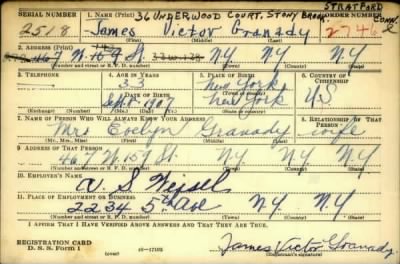 STRATFORD
SERIAL NUMBER 1. NAME (Print) 36 UNDERWOOD COURT, STONY BROOK, Conn. ORDER NUMBER
2518 James Victor Granady 2746
(First) (Middle) (Last)
2. ADDRESS (Print)
W. 159 St N.Y N.Y
(Number and street or R. F. D. number) (Town) (County) (State)
3. TELEPHONE 4. AGE IN YEARS 5. PLACE OF BIRTH 6. COUNTRY OF CITIZENSHIP
33 New York
DATE OF BIRTH
Sept 8 1907 New York U S
(Exchange) (Number) (Mo.) (Day) (Yr.) (State or country)
7. NAME OF PERSON WHO WILL ALWAYS KNOW YOUR ADDRESS 8. RELATIONSHIP OF THAT PERSON
Mrs Evelyn Granady wife
(Mr., Mrs., Miss) (First) (Middle) (Last)
9. ADDRESS OF THAT PERSON
467 W. 159 St. N.Y N.Y
(Number and street or R. F. D. number) (Town) (County) (State)
10. EMPLOYER'S NAME
A. S. Weisel
11. PLACE OF EMPLOYMENT OR BUSINESS
2234 5th Ave N.Y N.Y
(Number and street or R. F. D. number) (Town) (County) (State)
I AFFIRM THAT I HAVE VERIFIED ABOVE ANSWERS AND THAT THEY ARE TRUE.
REGISTRATION CARD
D. S. S. Form 1 James Victor Granady
(Registrant's signature)